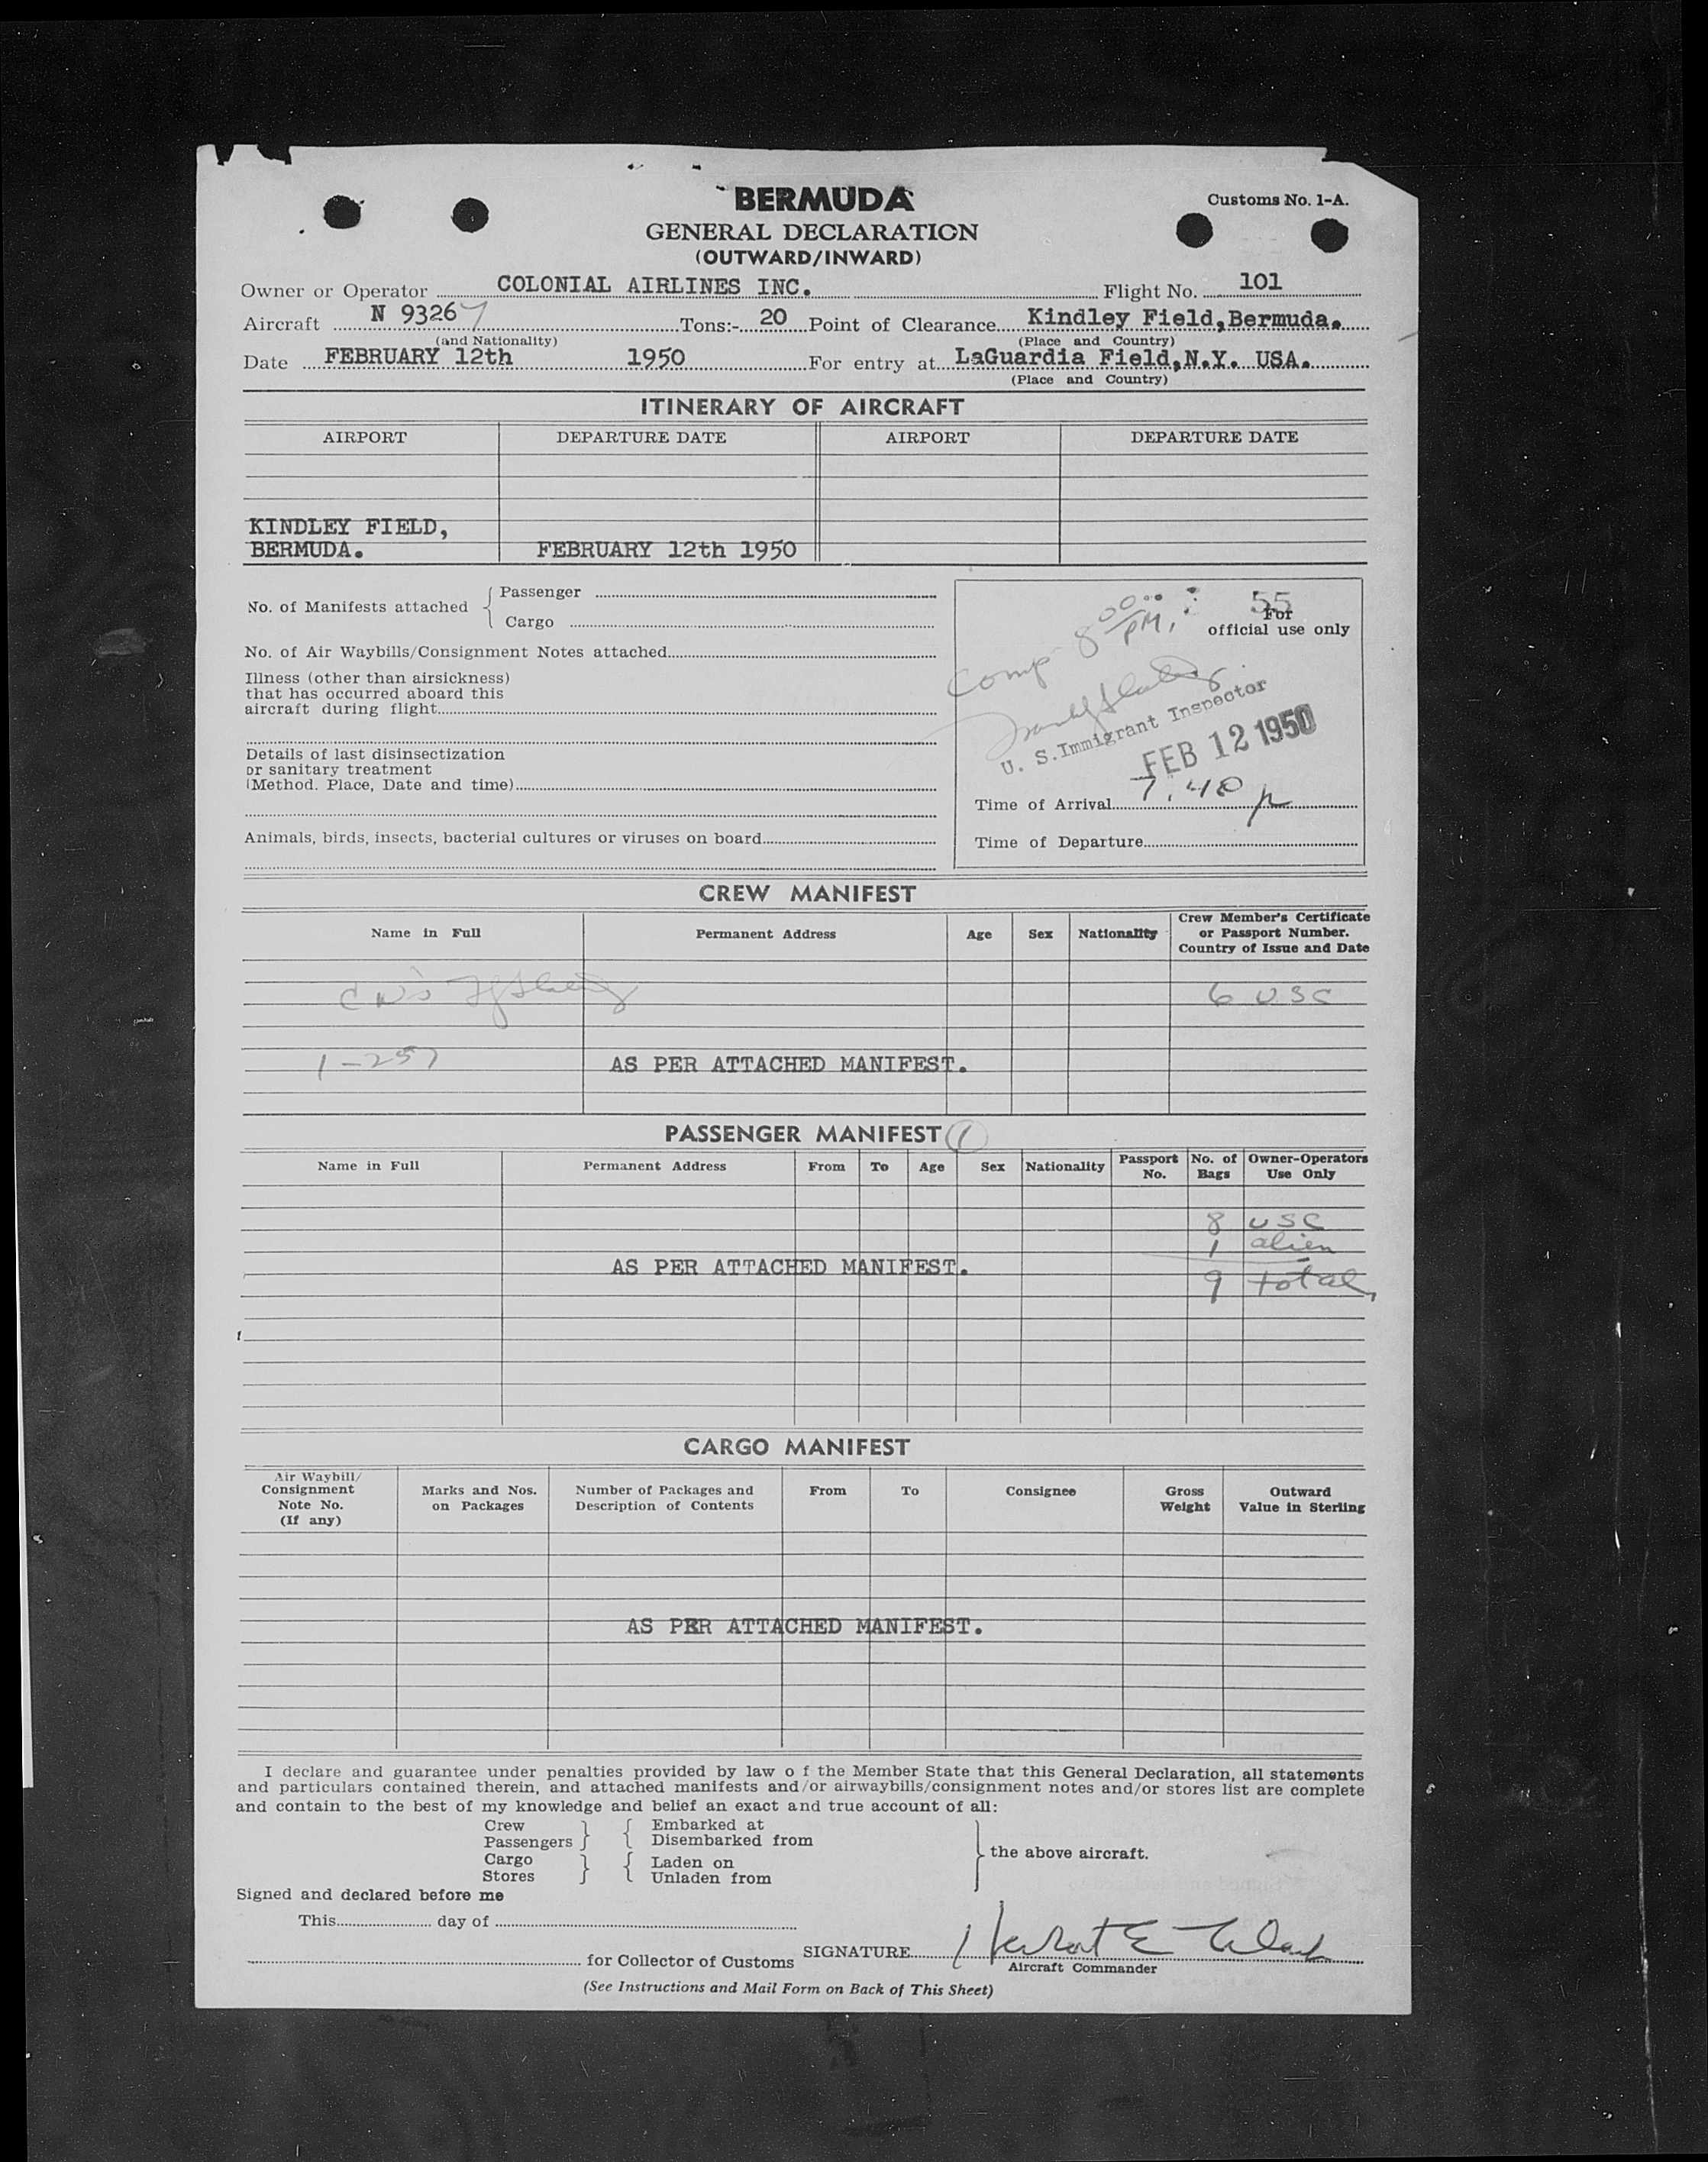 BERMUDA
Customs No. 1-A.
GENERAL DECLARATION
(OUTWARD/INWARD)
Owner or Operator COLONIAL AIRLINES INC. Flight No. 101
Aircraft N 93267 Tons:- 20 Point of Clearance Kindley Field,Bermuda.
(and Nationality) (Place and Country)
Date FEBRUARY 12th 1950 For entry at LaGuardia Field,N.Y. USA.
(Place and Country)
ITINERARY OF AIRCRAFT
AIRPORT DEPARTURE DATE AIRPORT DEPARTURE DATE
KINDLEY FIELD,
BERMUDA. FEBRUARY 12th 1950
No. of Manifests attached { Passenger
Cargo
No. of Air Waybills/Consignment Notes attached
Illness (other than airsickness)
that has occurred aboard this
aircraft during flight
Details of last disinsectization
or sanitary treatment
(Method. Place, Date and time)
Animals, birds, insects, bacterial cultures or viruses on board
55
For
official use only
Comp 8 00 PM,
U. S. Immigrant Inspector
FEB 12 1950
Time of Arrival 7:40 p
Time of Departure
CREW MANIFEST
Name in Full Permanent Address Age Sex Nationality Crew Member's Certificate or Passport Number. Country of Issue and Date
6 USC
1-257 AS PER ATTACHED MANIFEST.
PASSENGER MANIFEST (1)
Name in Full Permanent Address From To Age Sex Nationality Passport No. No. of Bags Owner-Operators Use Only
8 USC
1 alien
AS PER ATTACHED MANIFEST.
9 total
CARGO MANIFEST
Air Waybill/ Consignment Note No. (If any) Marks and Nos. on Packages Number of Packages and Description of Contents From To Consignee Gross Weight Outward Value in Sterling
AS PER ATTACHED MANIFEST.
I declare and guarantee under penalties provided by law o f the Member State that this General Declaration, all statements
and particulars contained therein, and attached manifests and/or airwaybills/consignment notes and/or stores list are complete
and contain to the best of my knowledge and belief an exact and true account of all:
Crew } { Embarked at
Passengers } { Disembarked from
Cargo } { Laden on } the above aircraft.
Stores } { Unladen from
Signed and declared before me
This day of
for Collector of Customs SIGNATURE Herbert E
Aircraft Commander
(See Instructions and Mail Form on Back of This Sheet)